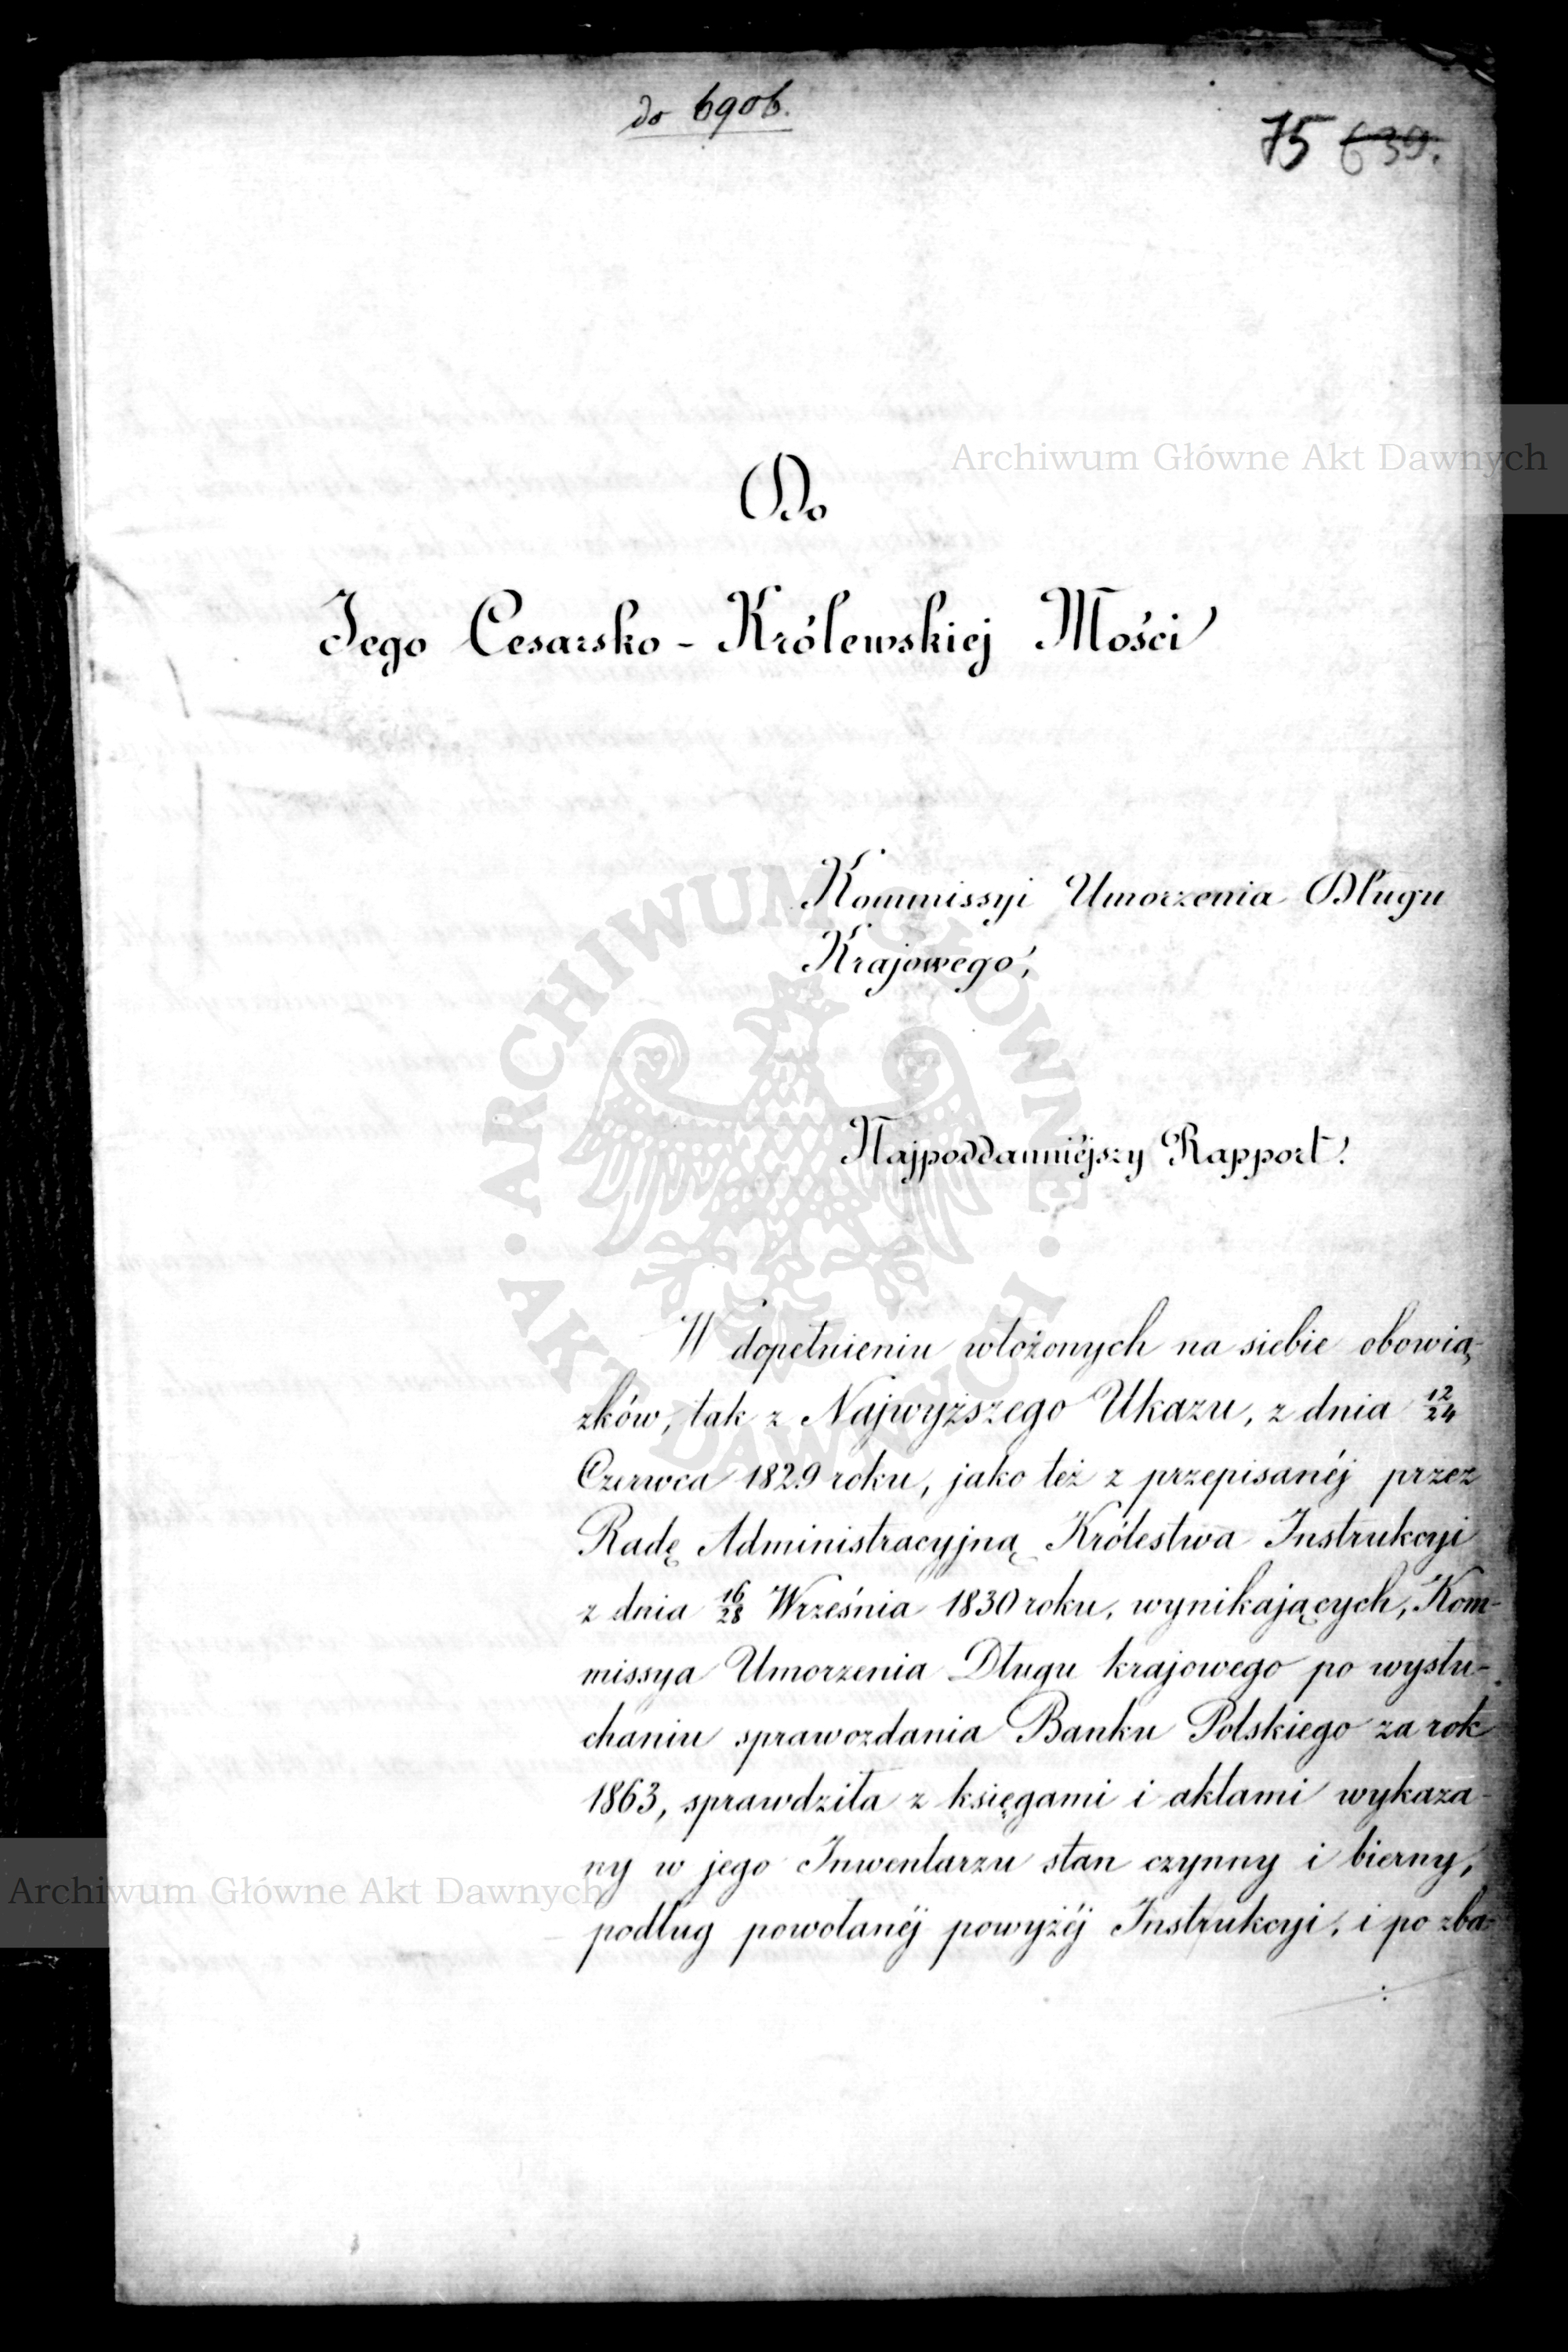 do 6906.
75 639.
Do
Archiwum Główne Akt Dawnych
Jego Cesarsko - Królewskiej Mości
Kommissyi Umorzenia Długu
Krajowego,
ARCHIWUM GŁÓWNE
AKT DAWNYCH
Najpoddanniéjszy Rapport.
W dopełnieniu włożonych na siebie obowią-
zków, tak z Najwyższego Ukazu, z dnia 12/24
Czerwca 1829 roku, jako też z przepisanéj przez
Radę Administracyjną Królestwa Instrukcyi
z dnia 16/28 Września 1830 roku, wynikających, Kom-
missya Umorzenia Długu krajowego po wysłu-
chaniu sprawozdania Banku Polskiego za rok
1863, sprawdziła z księgami i aktami wykaza-
ny w jego Inwentarzu stan czynny i bierny,
Archiwum Główne Akt Dawnych
podług powołanéj powyżéj Instrukcyi, i po zba-